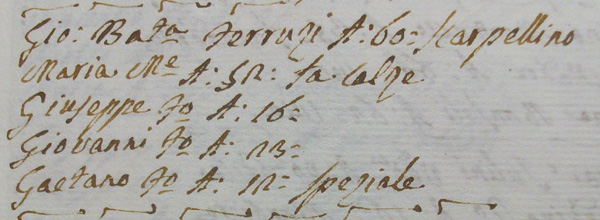 Gio: Bata Ferruzi A: 60= Scarpellino
Maria Me A: 52: fa Calze
Giuseppe fo A: 16=
Giovanni fo A: 13=
Gaetano fo A: 12= Speziale